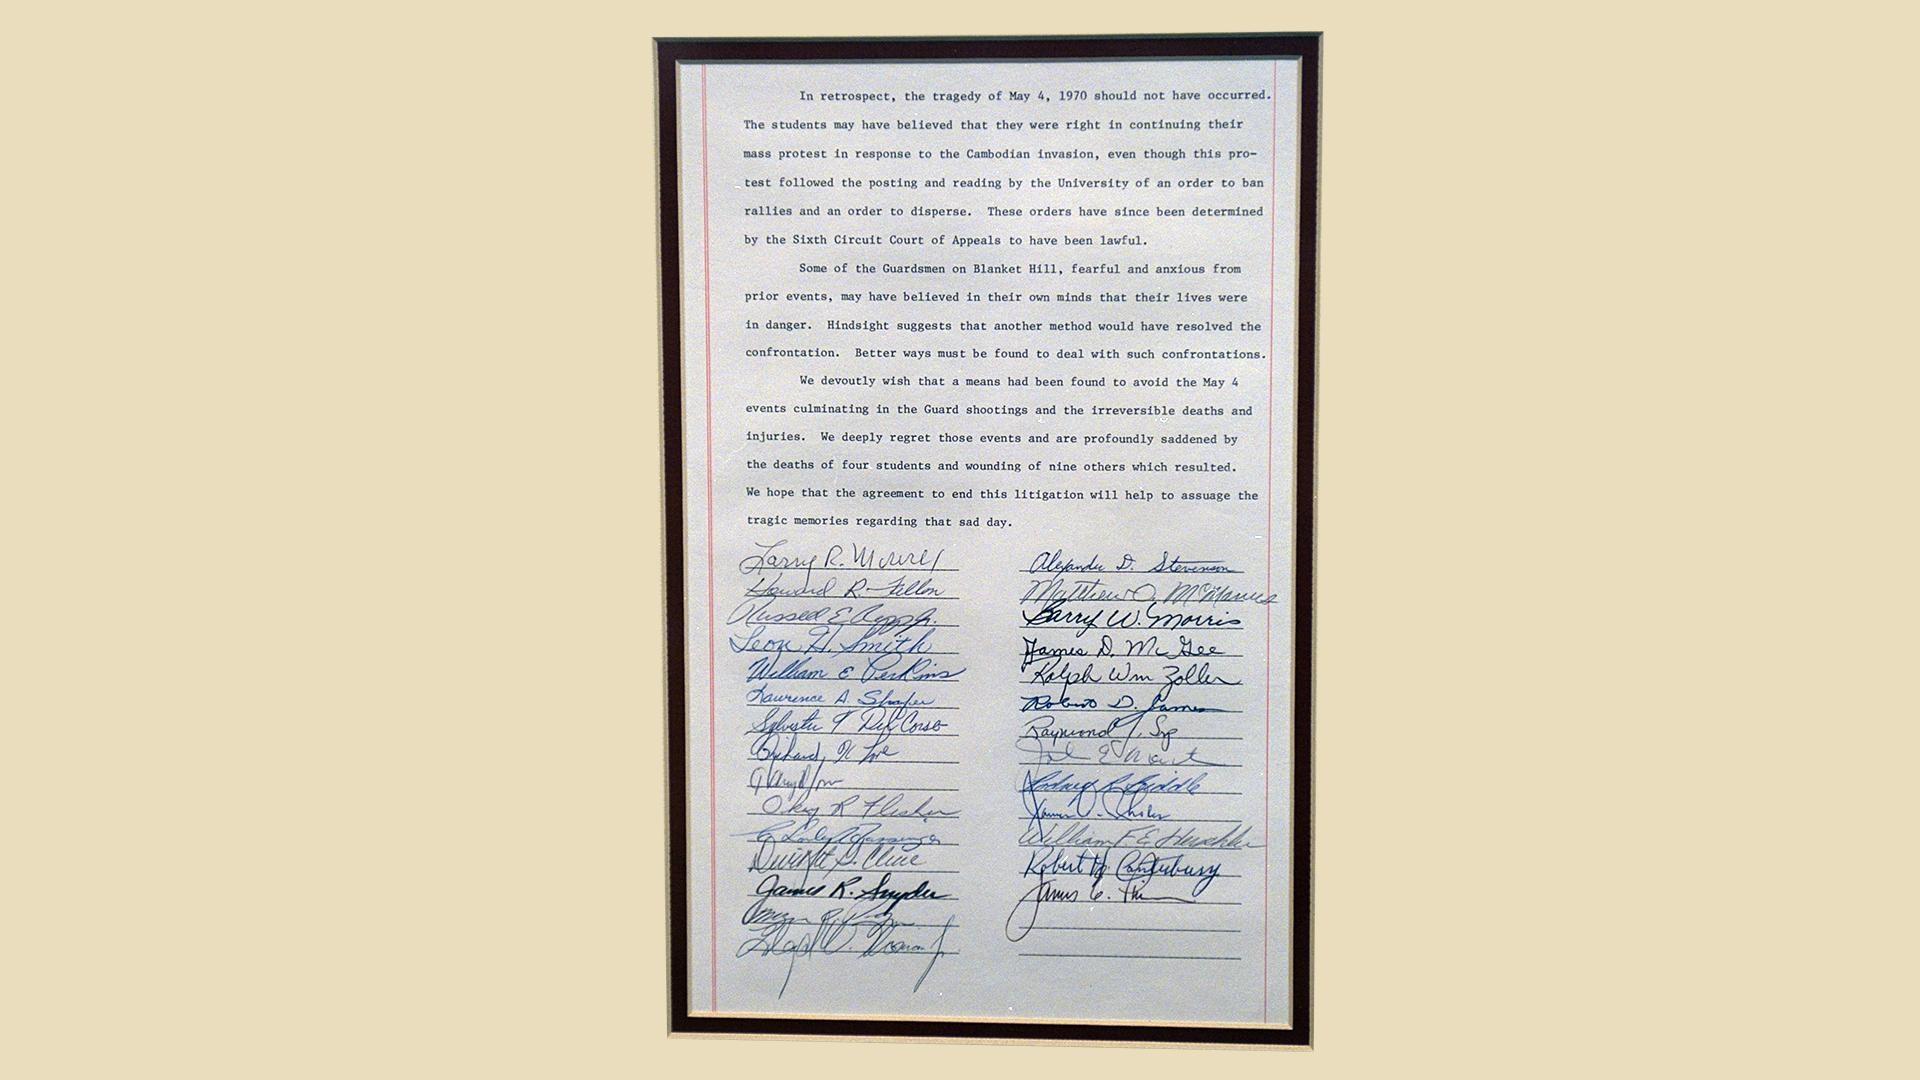 In retrospect, the tragedy of May 4, 1970 should not have occurred.
The students may have believed that they were right in continuing their
mass protest in response to the Cambodian invasion, even though this pro-
test followed the posting and reading by the University of an order to ban
rallies and an order to disperse. These orders have since been determined
by the Sixth Circuit Court of Appeals to have been lawful.
Some of the Guardsmen on Blanket Hill, fearful and anxious from
prior events, may have believed in their own minds that their lives were
in danger. Hindsight suggests that another method would have resolved the
confrontation. Better ways must be found to deal with such confrontations.
We devoutly wish that a means had been found to avoid the May 4
events culminating in the Guard shootings and the irreversible deaths and
injuries. We deeply regret those events and are profoundly saddened by
the deaths of four students and wounding of nine others which resulted.
We hope that the agreement to end this litigation will help to assuage the
tragic memories regarding that sad day.
Larry R.
Howard R. Fallon
Russell E.
Leon H. Smith
William E Perkins
Lawrence A. Shafer
Sylvester T Del Corso

Okey R Flesher

Dwight G. Cline
James R. Snyder

Lloyd
Alexander D. Stevenson
Matthew J. McManus
Barry W. Morris
James D. McGee
Ralph Wm Zoller
Robert D. James
Raymond J. Srp
John E
Rodney R Biddle
James
William F.E. Herschler
Robert H. Canterbury
James